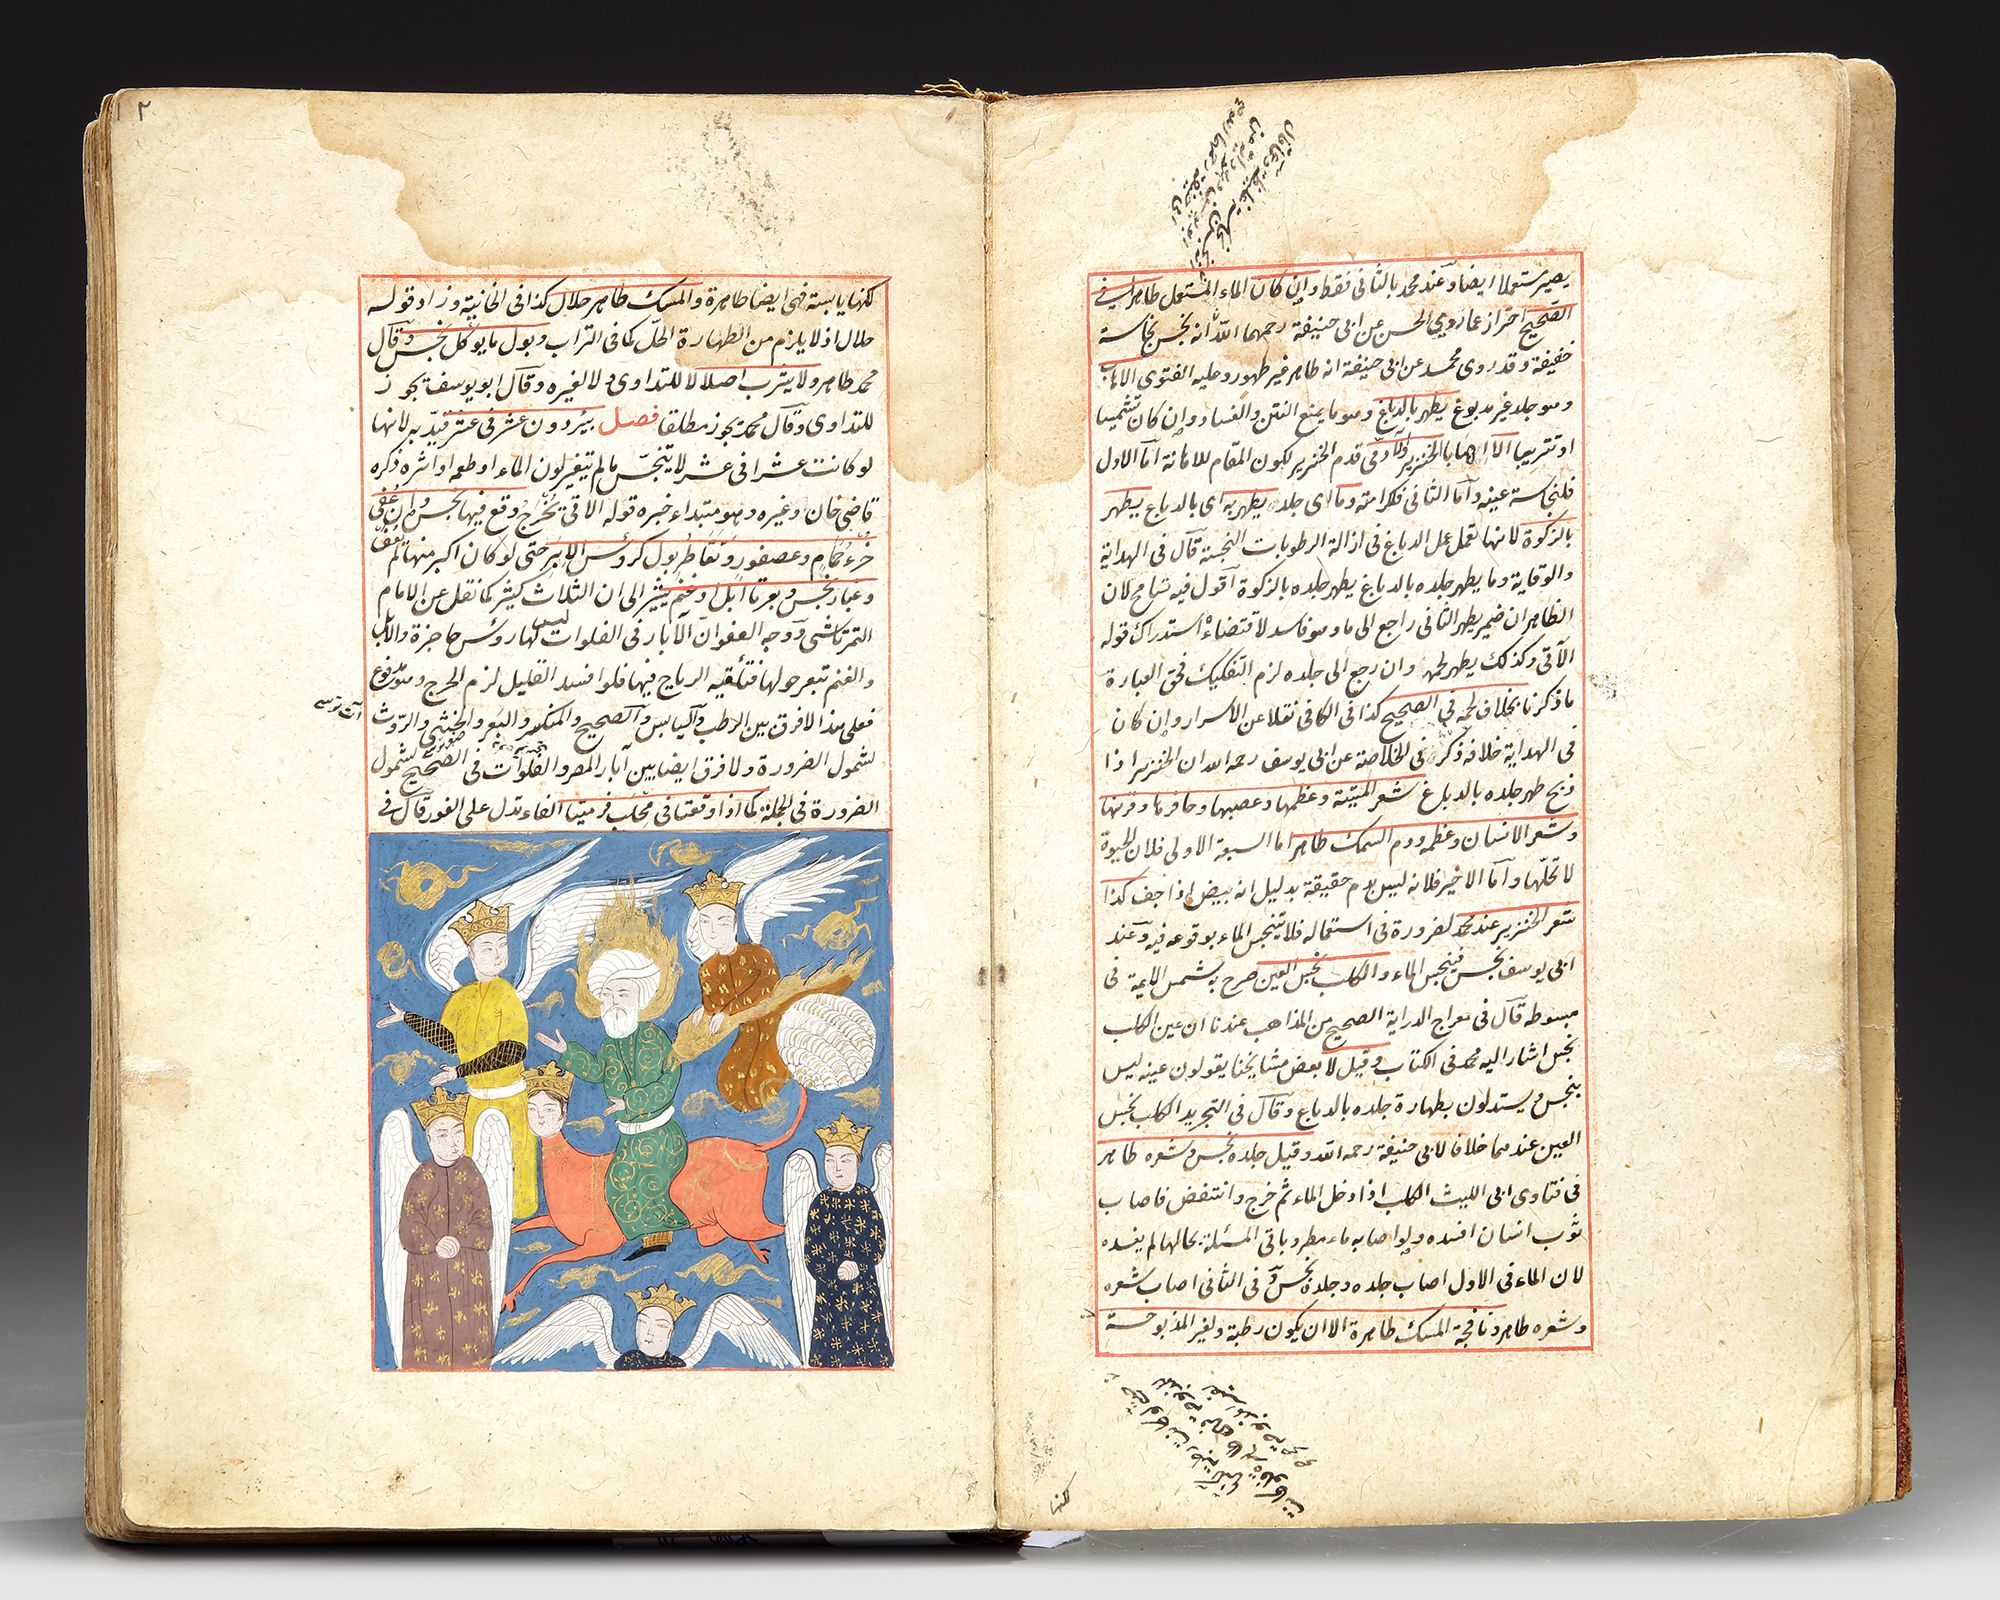 يصير مستعملا ايضا وعند محمد بالثاني فقط وان كان الماء المستعمل طاهرا في
الصحيح احتراز عما روي الحسن عن ابي حنيفة رحمهما الله انه نجس نجاسة
خفيفة وقد روى محمد عن ابي حنيفة انه طاهر غير طهور وعليه الفتوى الاهاب
وهو جلد غير مدبوغ يطهر بالدباغ وهو ما يمنع النتن والفساد وان كان تشميسا
او تتريبا الا اهاب الخنزير والآدمي قدم الخنزير لكون المقام للاهانة اما الاول
فلنجاسة عينه واما الثاني فلكرامته وما اى جلد يطهر به اى بالدباغ يطهر
بالزكوة لانها تعمل عمل الدباغ في ازالة الرطوبات النجسة قال في الهداية
والوقاية وما يطهر جلده بالدباغ يطهر جلده بالزكوة اقول فيه تسامح لان
الظاهر ان ضمير يطهر الثاني راجع الى ما وهو فاسد لاقتضاءه استدراك قوله
الآتي وكذلك يطهر لحمه وان رجع الى جلده لزم التفكيك فحق العبارة
ما ذكرنا بخلاف لحمه في الصحيح كذا في الكافي نقلا عن الاسرار وان كان
في الهداية خلافه ذكر في الخلاصة عن ابي يوسف رحمه الله ان الخنزير اذا
ذبح طهر جلده بالدباغ شعر الميتة وعظمها وعصبها وحافرها وقرنها
وشعر الانسان وعظمه ودم السمك طاهر اما السبعة الاولى فلان الحيوة
لا تحلها واما الاخير فلانه ليس بدم حقيقة بدليل انه يبيض اذا جف كذا
شعر الخنزير عند محمد لضرورة في استعماله فلا ينجس الماء بوقوعه فيه وعند
ابي يوسف نجس فينجس الماء والكلب نجس العين صرح به شمس الايمة في
مبسوطه قال في معراج الدراية الصحيح من المذاهب عندنا ان عين الكلب
نجس اشار اليه محمد في الكتاب وقيل لا بعض مشايخنا يقولون عينه ليس
بنجس ويستدلون بطهارة جلده بالدباغ وقال في التجريد الكلب نجس
العين عندهما خلافا لابي حنيفة رحمه الله وقيل جلده نجس وشعره طاهر
في فتاوى ابي الليث الكلب اذا دخل الماء ثم خرج وانتفض فاصاب
ثوب انسان افسده ولو اصابه ماء مطر وباقي المسئلة بحالها لم يفسده
لان الماء في الاول اصاب جلده وجلده نجس وفي الثاني اصاب شعره
وشعره طاهر ونافجة المسك طاهرة الا ان يكون رطبة ولغير المذبوحة
لكنها
٢
لكنها يابسة فهى ايضا طاهرة والمسك طاهر حلال كذا في الخانية وزاد قوله
حلال اذ لا يلزم من الطهارة الحل كما في التراب وبول ما يؤكل نجس وقال
محمد طاهر ولا يشرب اصلا لا للتداوى ولا لغيره وقال ابو يوسف يجوز
للتداوى وقال محمد يجوز مطلقا فصل بير دون عشر في عشر قيد به لانها
لو كانت عشرا في عشر لا يتنجس ما لم يتغير لون الماء او طعمه او اثره ذكره
قاضى خان وغيره وهو مبتداء خبره قوله الاتي يخرج وقع فيها نجس
خرء حمام وعصفور وتقاطر بول كرؤس الابر حتى لو كان اكبر منها لم
وغبار نجس وبعرتا ابل او غنم يشير الى ان الثلاث كثير كما نقل عن الامام
التمرتاشى ووجه العفو ان الآبار في الفلوات ليس لها رؤس حاجزة والابل
والغنم تبعر حولها فتلقيه الرياح فيها فلو افسد القليل لزم الحرج وهو مدفوع
فعلى هذا لا فرق بين الرطب واليابس والصحيح والمنكسر والبعر والخثى والروث
لشمول الضرورة ولا فرق ايضا بين آبار المصر والفلوات في الصحيح لشمول
الضرورة في الجملة كما اذا وقعتا في محلب فرميتا الفاء تدل على الفور قال في